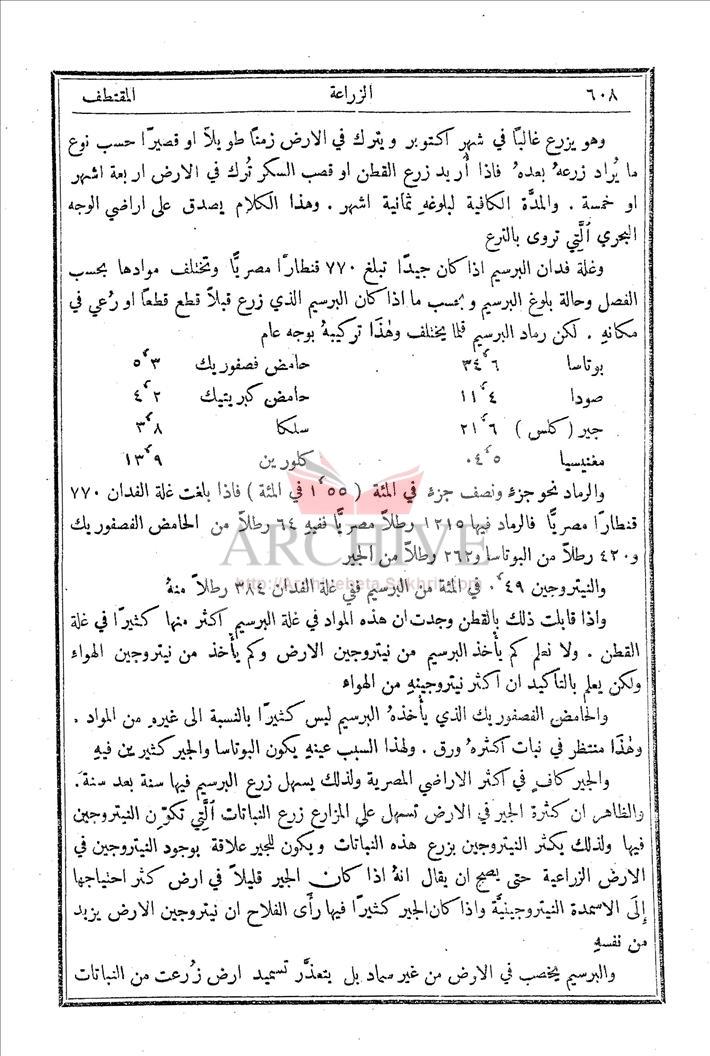 ٦٠٨ الزراعة المقتطف
وهو يزرع غالبًا في شهر اكتوبر ويترك في الارض زمنًا طويلاً او قصيرًا حسب نوع
ما يُراد زرعهُ بعدهُ فاذا أُريد زرع القطن او قصب السكر تُرك في الارض اربعة اشهر
او خمسة . والمدَّة الكافية لبلوغهِ ثمانية اشهر . وهذا الكلام يصدق على اراضي الوجه
البحري الَّتي تروى بالترع
وغلة فدان البرسيم اذا كان جيدًا تبلغ ٧٧٠ قنطارًا مصريًّا وتختلف موادها بحسب
الفصل وحالة بلوغ البرسيم وبحسب ما اذا كان البرسيم الذي زرع قبلاً قطع قطعًا او رُعي في
مكانهِ . لكن رماد البرسيم قلما يختلف وهٰذا تركيبهُ بوجه عام
بوتاسا ٣٤٬٦ حامض فصفوريك ٥٬٣
صودا ١١٬٤ حامض كبريتيك ٤٬٢
جير (كلس) ٢١٬٦ سلكا ٣٬٨
مغنيسيا ٠٤٬٥ كلورين ١٣٬٩
والرماد نحو جزءٍ ونصف جزءٍ في المئة (١٬٥٥ في المئة) فاذا بلغت غلة الفدان ٧٧٠
قنطارًا مصريًّا فالرماد فيها ١٢١٥ رطلاً مصريًّا ففيهِ ٦٤ رطلاً من الحامض الفصفوريك
و٤٢٠ رطلاً من البوتاسا و٢٦٢ رطلاً من الجير
ARCHIVE
والنيتروجين ٠٬٤٩ في المئة من البرسيم ففي غلة الفدان ٣٨٤ رطلاً منهُ
واذا قابلت ذلك بالقطن وجدت ان هذه المواد في غلة البرسيم اكثر منها كثيرًا في غلة
القطن . ولا نعلم كم يأخذ البرسيم من نيتروجين الارض وكم يأخذ من نيتروجين الهواء
ولكن يعلم بالتأكيد ان اكثر نيتروجينهِ من الهواء
والحامض الفصفوريك الذي يأخذهُ البرسيم ليس كثيرًا بالنسبة الى غيرهِ من المواد .
وهٰذا منتظر في نبات اكثرهُ ورق . ولهذا السبب عينهِ يكون البوتاسا والجير كثيرين فيهِ
والجير كافٍ في اكثر الاراضي المصرية ولذلك يسهل زرع البرسيم فيها سنة بعد سنة .
والظاهر ان كثرة الجير في الارض تسهل على المزارع زرع النباتات الَّتي تكوّن النيتروجين
فيها ولذلك يكثر النيتروجين بزرع هذه النباتات ويكون للجير علاقة بوجود النيتروجين في
الارض الزراعية حتى يصح ان يقال انهُ اذا كان الجير قليلاً في ارض كثر احتياجها
إلَى الاسمدة النيتروجينيَّة واذا كان الجير كثيرًا فيها رأى الفلاح ان نيتروجين الارض يزيد
من نفسهِ
والبرسيم يخصب في الارض من غير سماد بل يتعذَّر تسميد ارض زُرعت من النباتات